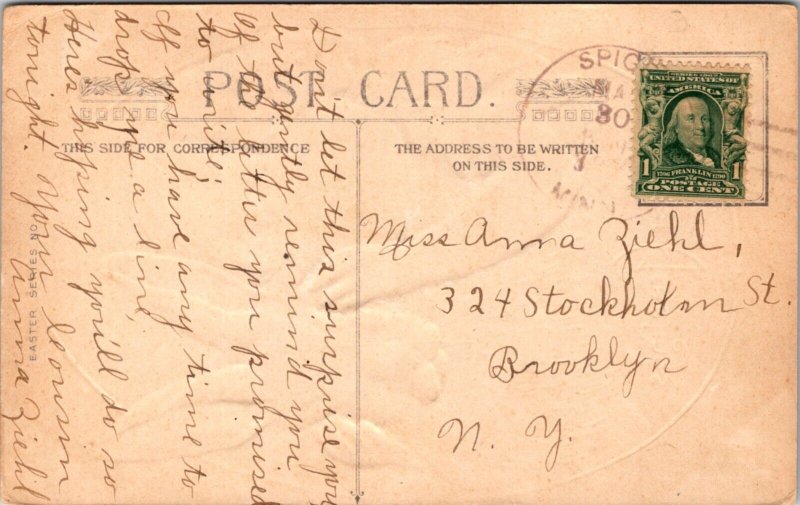 POST CARD.
THIS SIDE FOR CORRESPONDENCE
THE ADDRESS TO BE WRITTEN
ON THIS SIDE.
Don't let this surprise you
but gently remind you
Of the letter you promised
to write;
If you have any time to
drop us a line
Heres hoping you'll do so
tonight. Your Cousin
Anna Ziehl
EASTER SERIES NO
SPIC
30
MINN
SERIES 1902
UNITED STATES OF
AMERICA
1706 FRANKLIN 1790
1 POSTAGE 1
ONE CENT
Miss Anna Ziehl,
324 Stockholm St.
Brooklyn
N. Y.